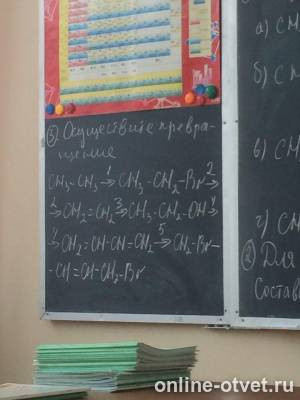 ③ Осуществите превра-
щение
CH₃-CH₃ →¹ CH₃-CH₂-Br →²
→² CH₂=CH₂ →³ CH₃-CH₂-OH →⁴
→⁴ CH₂=CH-CH=CH₂ →⁵ CH₂-Br-
-CH=CH-CH₂-Br
а) CH
б) CH
в) CH
г) CH
Для
Состав
online-otvet.ru